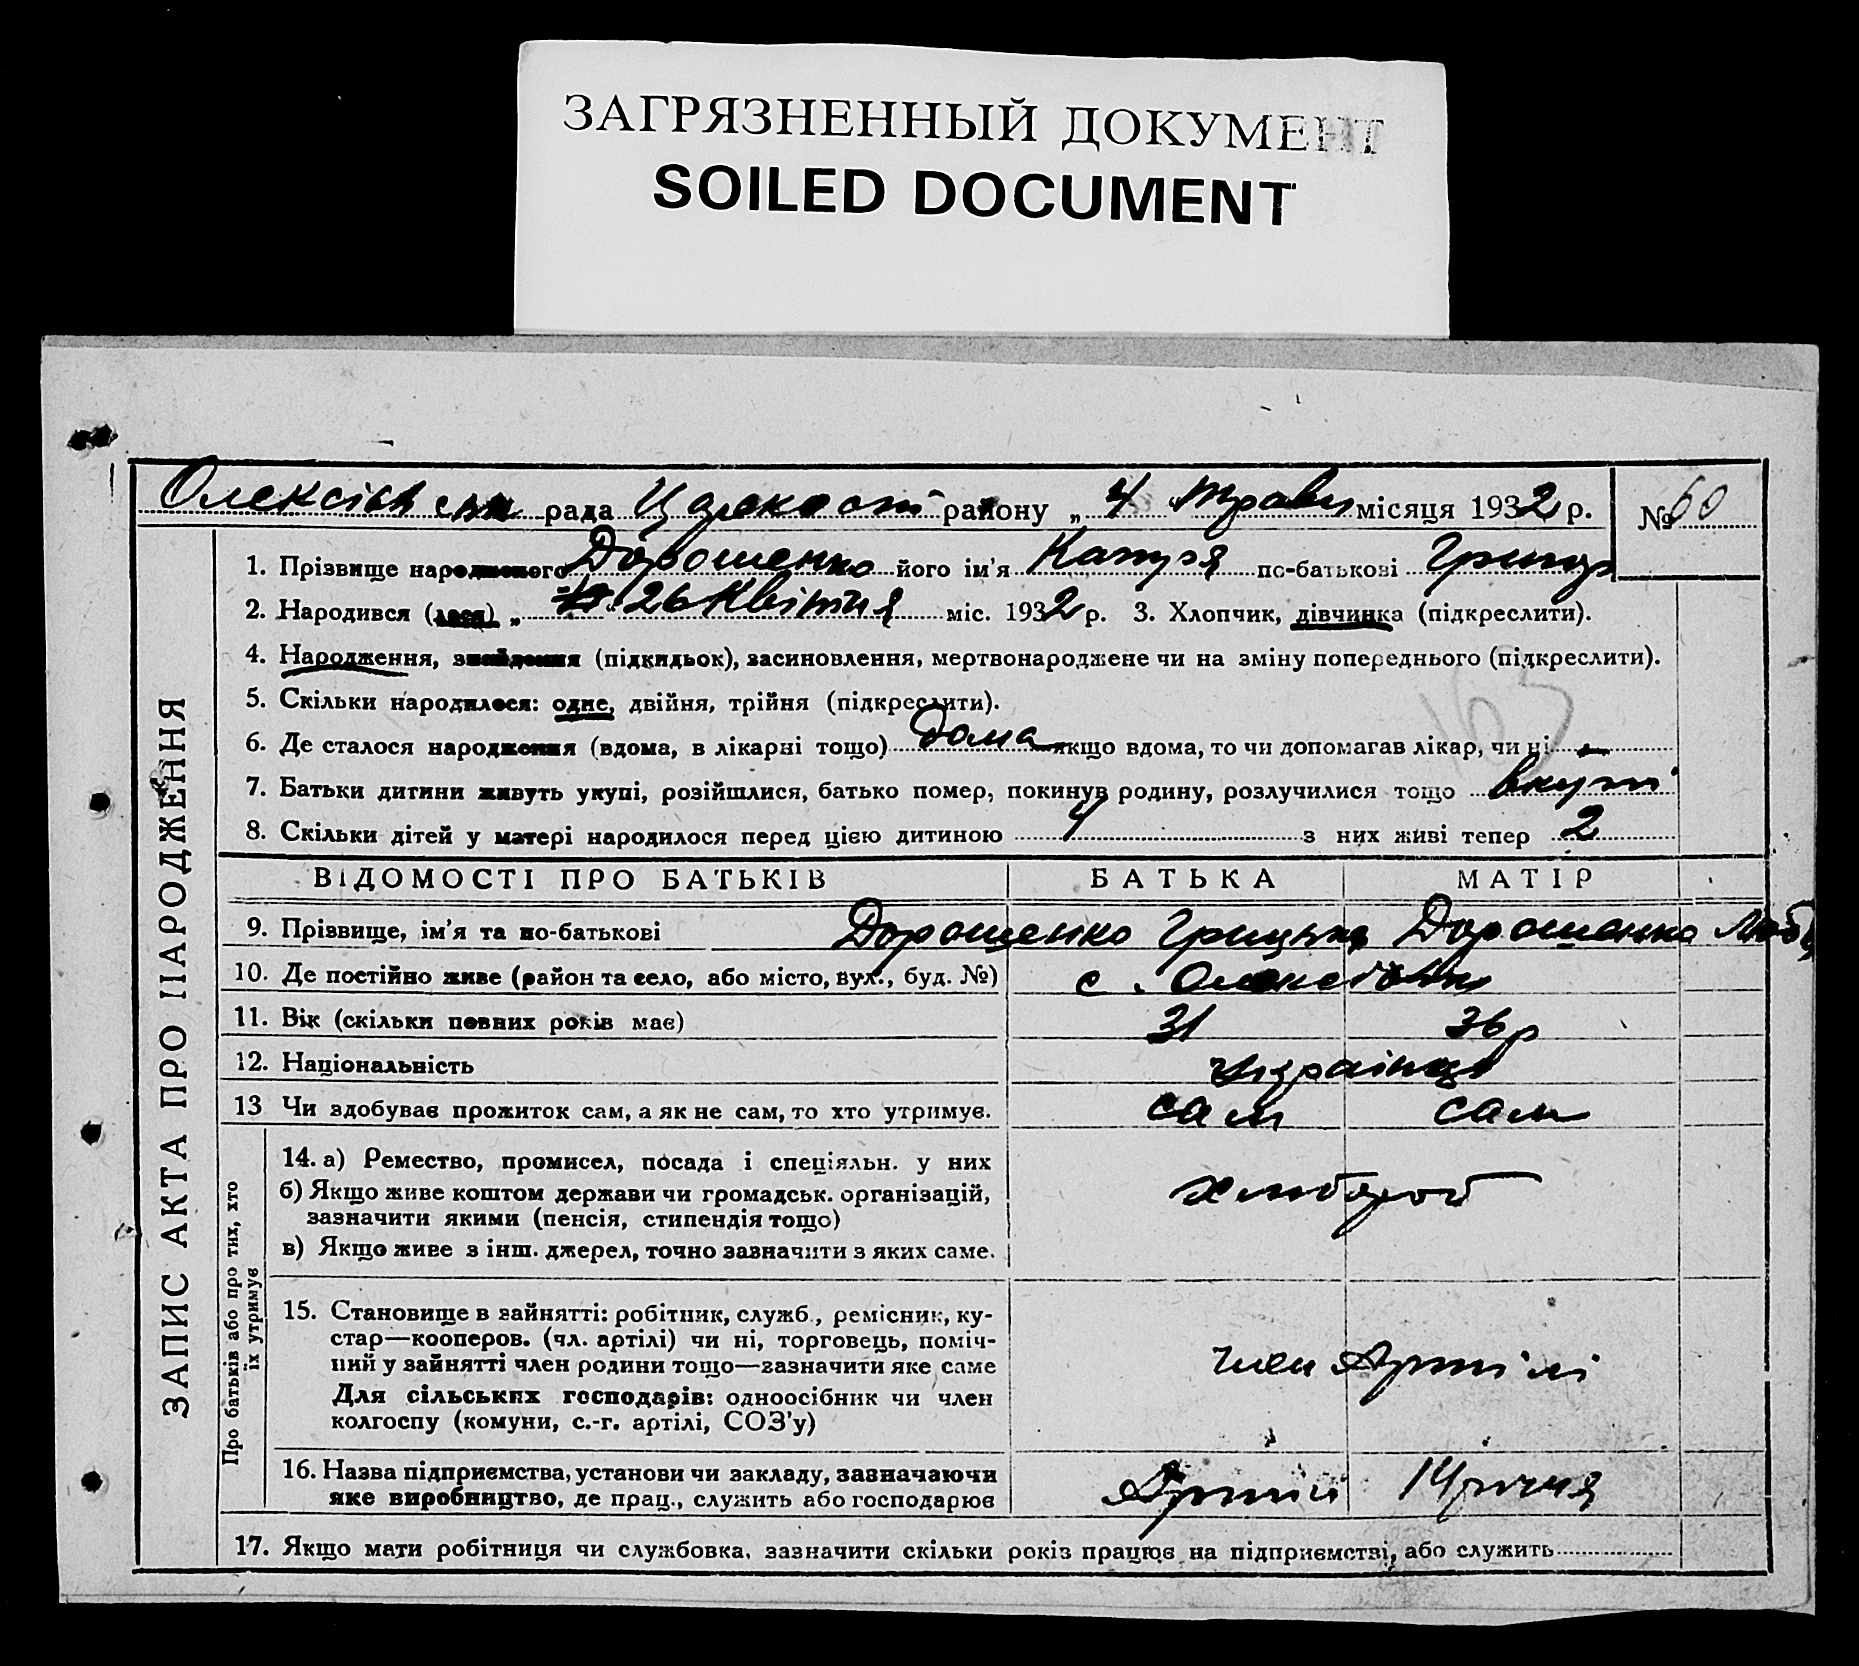 ЗАГРЯЗНЕННЫЙ ДОКУМЕНТ
SOILED DOCUMENT
рада району „ 4 травня місяця 1932 р. № 60
1. Прізвище народженого Дорошенко його ім'я по-батькові
2. Народився (лася) „ 26 Квітня міс. 1932 р. 3. Хлопчик, дівчинка (підкреслити).
4. Народження, знайдення (підкидьок), засиновлення, мертвонароджене чи на зміну попереднього (підкреслити).
163
5. Скільки народилося: одне, двійня, трійня (підкреслити).
6. Де сталося народження (вдома, в лікарні тощо) дома якщо вдома, то чи допомагав лікар, чи ні –
7. Батьки дитини живуть укупі, розійшлися, батько помер, покинув родину, розлучилися тощо вкупі
8. Скільки дітей у матері народилося перед цією дитиною 4 з них живі тепер 2
ЗАПИС АКТА ПРО НАРОДЖЕННЯ
ВІДОМОСТІ ПРО БАТЬКІВ БАТЬКА МАТІР
9. Прізвище, ім'я та по-батькові Дорошенко Грицько Дорошенко
10. Де постійно живе (район та село, або місто, вул., буд. №) с.
11. Вік (скільки повних років має) 31 36 р
12. Національність Українці
13 Чи здобуває прожиток сам, а як не сам, то хто утримує. сам сам
Про батьків або про тих, хто
їх утримує
14. а) Ремество, промисел, посада і спеціяльн. у них
б) Якщо живе коштом держави чи громадськ. організацій,
зазначити якими (пенсія, стипендія тощо)
хлібороб
в) Якщо живе з інш. джерел, точно зазначити з яких саме.
15. Становище в зайнятті: робітник, служб., ремісник, ку-
стар—кооперов. (чл. артілі) чи ні, торговець, поміч-
ний у зайнятті член родини тощо—зазначити яке саме
член Артілі
Для сільських господарів: одноосібник чи член
колгоспу (комуни, с.-г. артілі, СОЗ'у)
16. Назва підприємства, установи чи закладу, зазначаючи
яке виробництво, де прац., служить або господарює
Артіл 14 річчя
17. Якщо мати робітниця чи службовка, зазначити скільки років працює на підприємстві, або служить